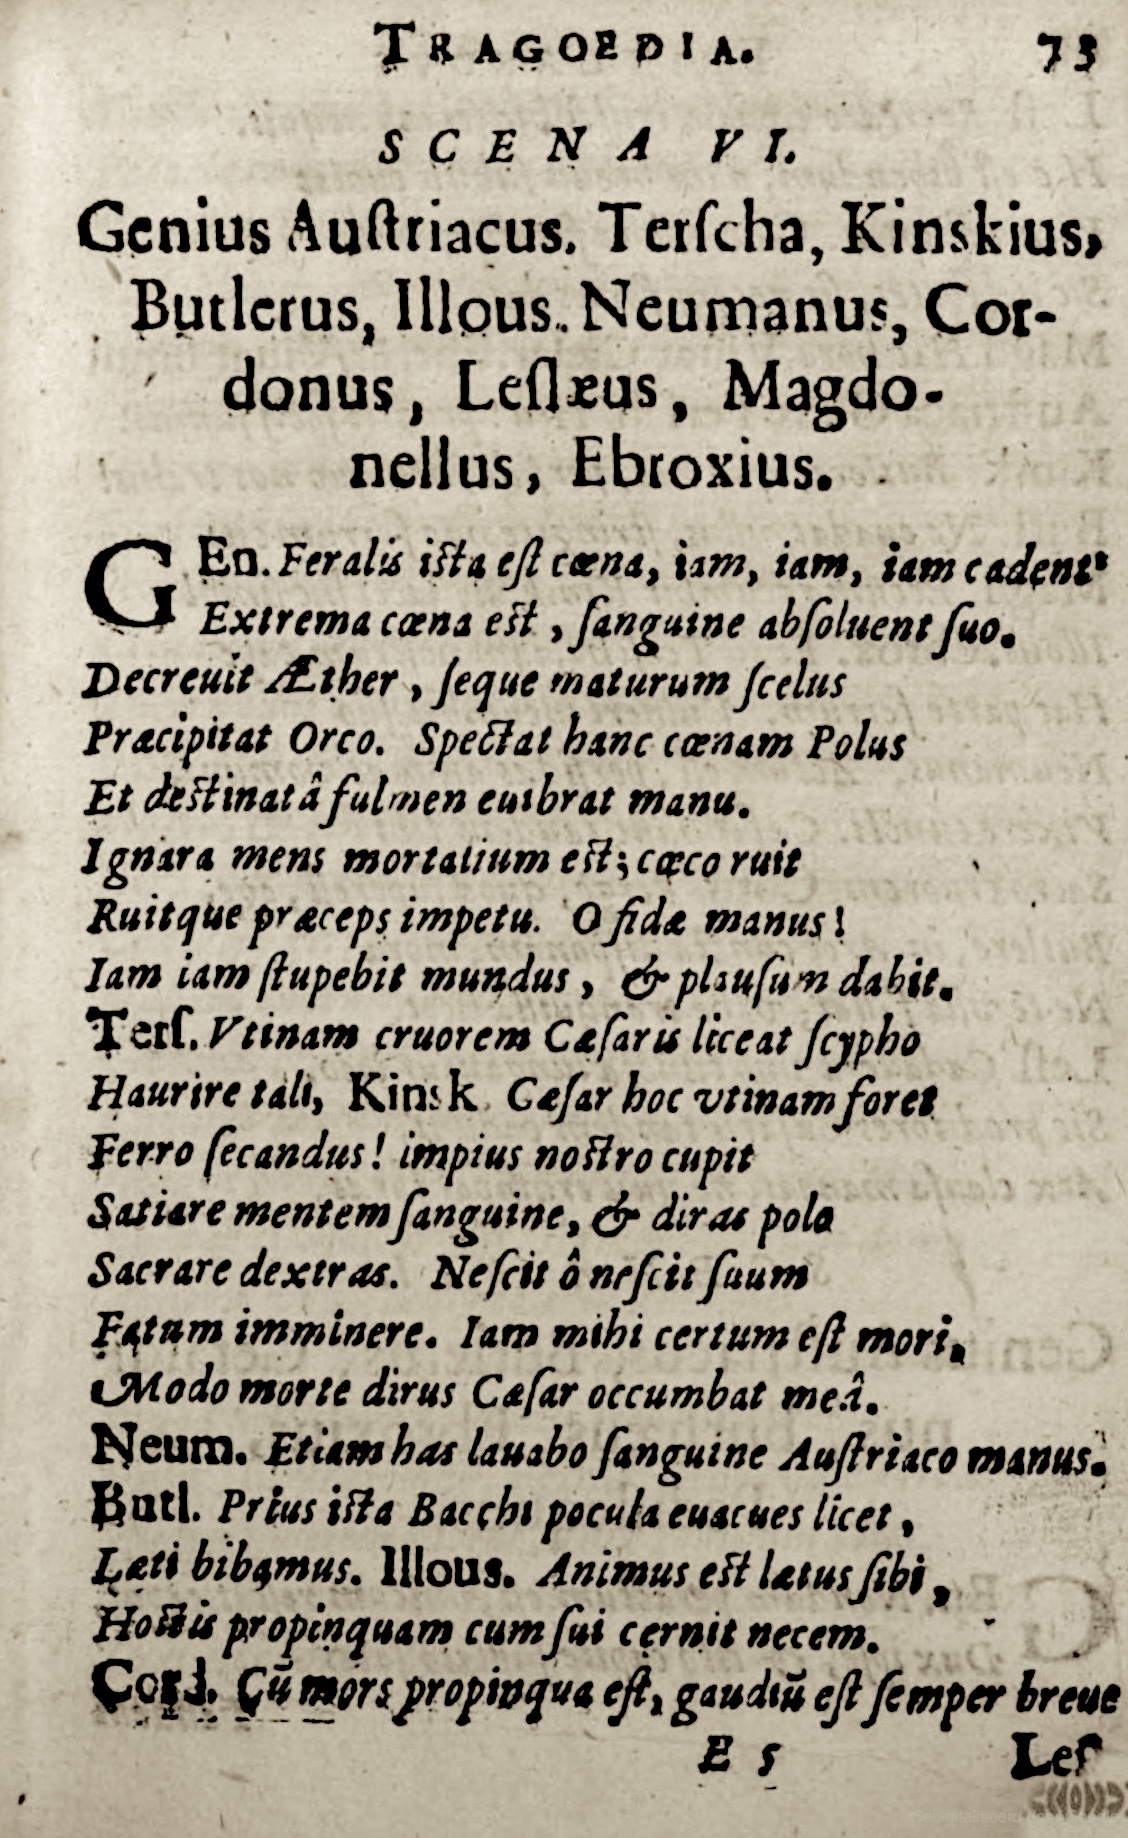 TRAGOEDIA. 73
SCENA VI.
Genius Auſtriacus. Terſcha, Kinskius,
Butlerus, Illous. Neumanus, Cor-
donus, Leſlæus, Magdo-
nellus, Ebroxius.
GEn. Feralis iſta eſt cœna, iam, iam, iam cadent
Extrema cœna eſt, ſanguine abſoluent ſuo.
Decreuit Æther, ſeque maturum ſcelus
Præcipitat Orco. Spectat hanc cœnam Polus
Et deſtinatâ fulmen euibrat manu.
Ignara mens mortalium eſt; cæco ruit
Ruitque præceps impetu. O fidæ manus!
Iam iam ſtupebit mundus, & plauſum dabit.
Terſ. Vtinam cruorem Cæſaris liceat ſcypho
Haurire tali, Kinsk. Cæſar hoc vtinam foret
Ferro ſecandus! impius noſtro cupit
Satiare mentem ſanguine, & diras polo
Sacrare dextras. Neſcit ô neſcit ſuum
Fatum imminere. Iam mihi certum eſt mori,
Modo morte dirus Cæſar occumbat meâ.
Neum. Etiam has lauabo ſanguine Auſtriaco manus.
Butl. Prius iſta Bacchi pocula euacues licet,
Læti bibamus. Illous. Animus eſt lætus ſibi,
Hoſtis propinquam cum ſui cernit necem.
Cord. Cũ mors propinqua eſt, gaudiũ eſt ſemper breue
E 5 Leſ